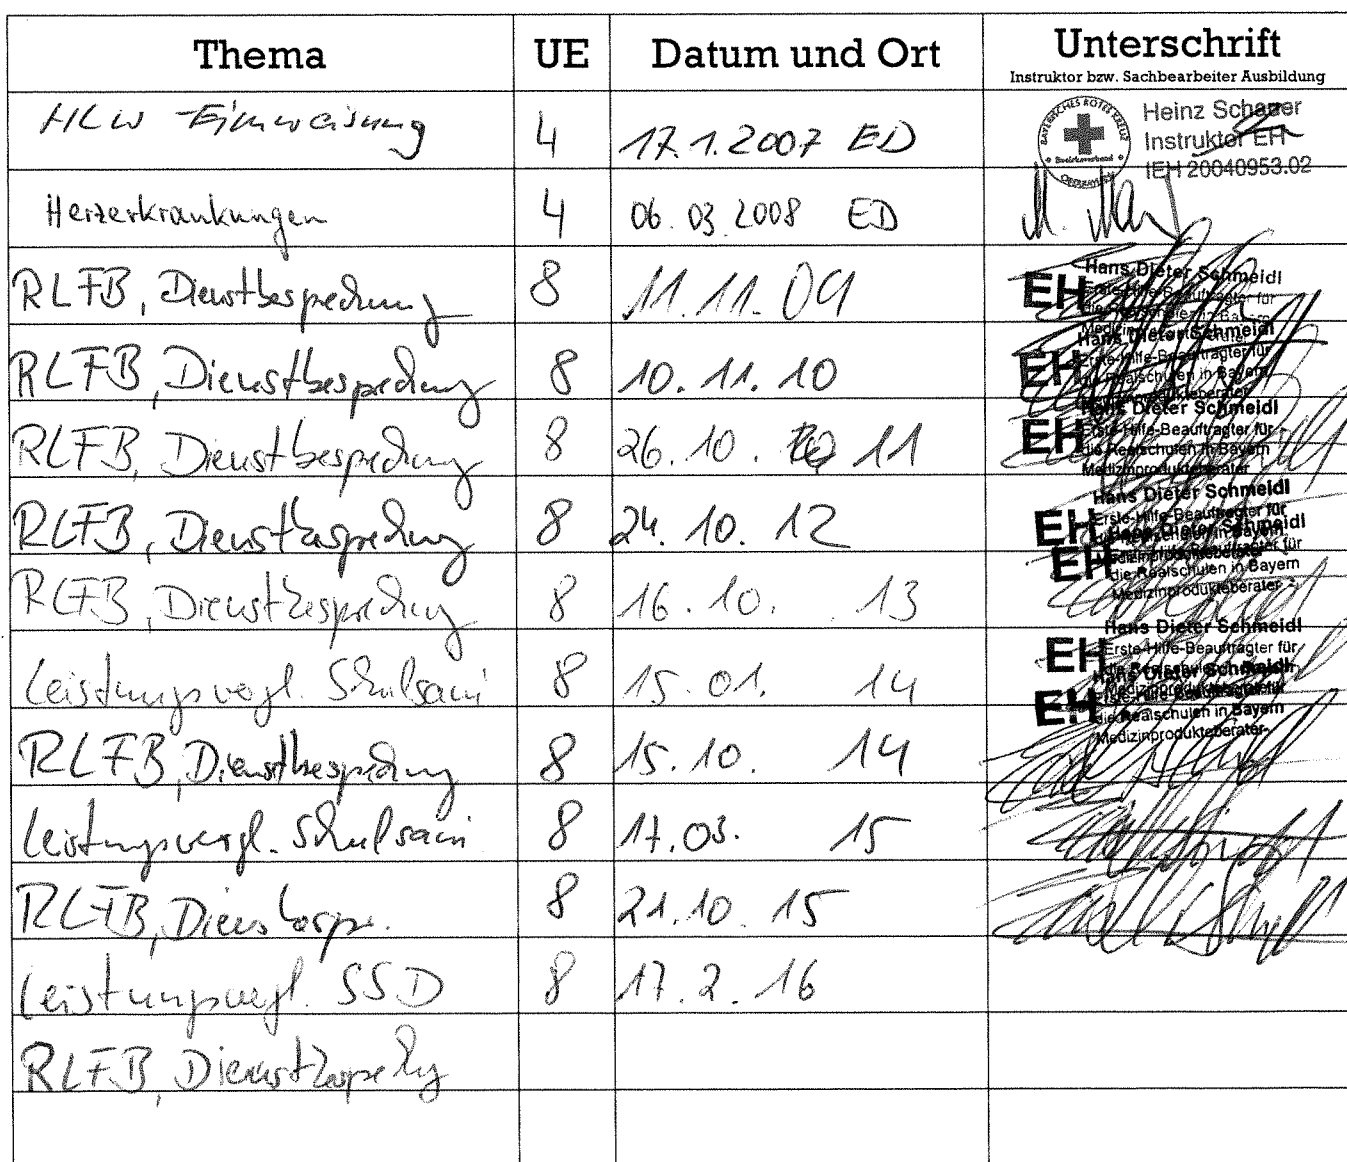 Thema UE Datum und Ort Unterschrift
Instruktor bzw. Sachbearbeiter Ausbildung
HLW Einweisung 4 17.1.2007 ED
BAYERISCHES ROTES KREUZ
Bezirksverband
OBERBAYERN
Heinz Schauer
Instruktor EH
IEH 20040953.02
Herzerkrankungen 4 06.03.2008 ED
RLFB, Dienstbesprechung 8 11.11.09
EH Hans Dieter Schmeidl
Erste-Hilfe-Beauftragter für
die Realschulen in Bayern
RLFB, Dienstbesprechung 8 10.11.10
EH Hans Dieter Schmeidl
Erste-Hilfe-Beauftragter für
die Realschulen in Bayern
Medizinprodukteberater
RLFB, Dienstbesprechung 8 26.10. 11
EH Hans Dieter Schmeidl
Erste-Hilfe-Beauftragter für
die Realschulen in Bayern
Medizinprodukteberater
RLFB, Dienstbesprechung 8 24.10.12
EH Hans Dieter Schmeidl
Erste-Hilfe-Beauftragter für
RLFB, Dienstbesprechung 8 16.10. 13
EH Hans Dieter Schmeidl
die Realschulen in Bayern
Medizinprodukteberater
Leistungsvergl. Schulsani 8 15.01. 14
EH Hans Dieter Schmeidl
Erste-Hilfe-Beauftragter für
RLFB, Dienstbesprechung 8 15.10. 14
EH Hans Dieter Schmeidl
die Realschulen in Bayern
Medizinprodukteberater
Leistungsvergl. Schulsani 8 17.03. 15
RLFB, Dienstbespr. 8 21.10.15
Leistungsvergl. SSD 8 17.2.16
RLFB, Dienstbesprechg